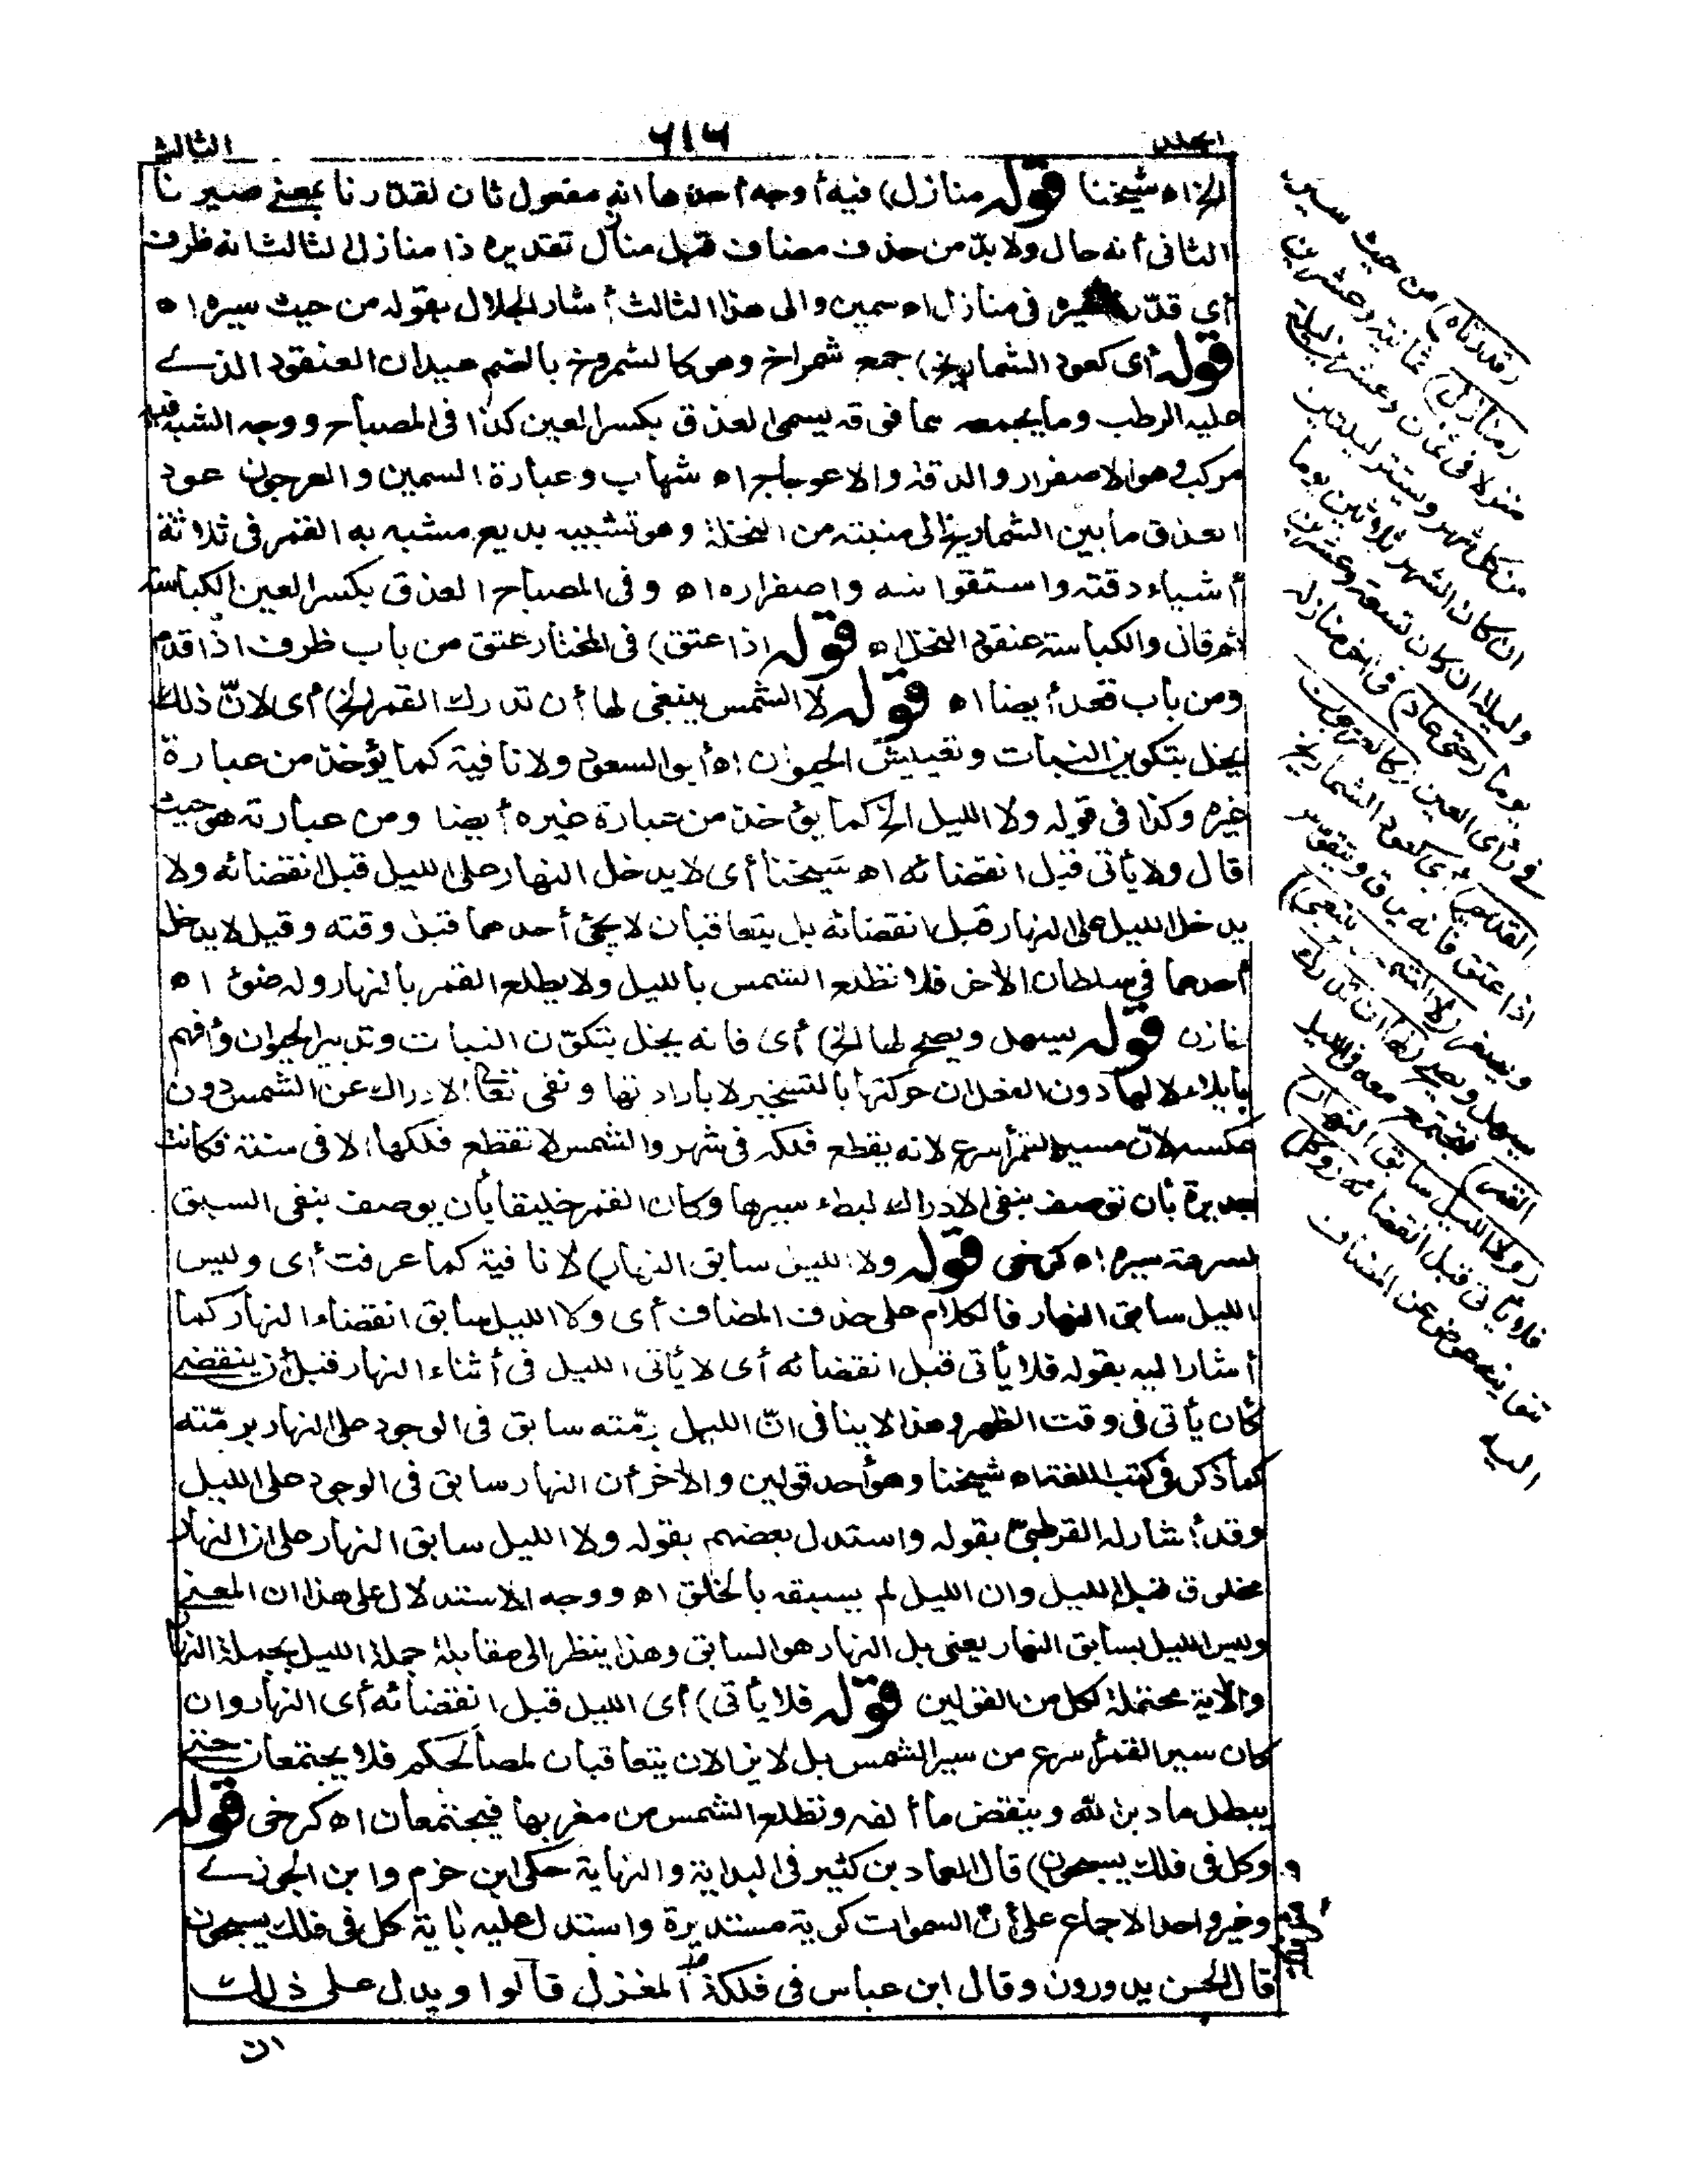 المجلد
٦١٦
الثالث
الخ اه شيخنا قوله منازل) فيه أوجه أحدها انه مفعول ثان لقدّرنا بمعنى صيرنا
الثانى أنه حال ولا بدّ من حذف مضاف قبل منازل تقديره ذا منازل الثالث انه ظرف
أى قدّرنا سيره فى منازل اه سمين والى هذا الثالث أشار الجلال بقوله من حيث سيره اه
قوله أى كعود الشماريخ) جمع شمراخ وهو كالشمروخ بالضم عيدان العنقود الذى
عليه الرطب وما يجمعه مما فوقه يسمى العذق بكسر العين كذا فى المصباح ووجه الشبه فيه
مركب وهو الاصفرار والدقة والاعوجاج اه شهاب وعبارة السمين والعرجون عود
العذق ما بين الشماريخ الى منبته من النخلة وهو تشبيه بديع مشبه به القمر فى ثلاثة
أشياء دقته واستقواسه واصفراره اه وفى المصباح العذق بكسر العين الكباسة
ثم قال والكباسة عنقود النخل اه قوله اذا عتق) فى المختار عتق من باب ظرف اذا قدم
ومن باب قعد أيضا اه قوله لا الشمس ينبغى لها أن تدرك القمر الخ) أى لانّ ذلك
يخل بتكوين النبات وتعييش الحيوان اه أبو السعود ولا نافية كما يؤخذ من عبارة
غيره وكذا فى قوله ولا الليل الخ كما يؤخذ من عبارة غيره أيضا ومن عبارته هو حيث
قال ولا يأتى قبل انقضائه اه شيخنا أى لا يدخل النهار على الليل قبل انقضائه ولا
يدخل الليل على النهار قبل انقضائه بل يتعاقبان لا يجئ أحدهما قبل وقته وقيل لا يدخل
أحدهما فى سلطان الاخر فلا تطلع الشمس بالليل ولا يطلع القمر بالنهار وله ضوء اه
خازن قوله يسهل ويصح لها الخ) أى فانه يخل بتكوّن النبات وتدبير الحيوان وأفهم
بايلاء لا لها دون الفعل ان حركتها بالتسخير لا بارادتها ونفى تعالى الادراك عن الشمس دون
عكسه لانّ مسير القمر أسرع لانه يقطع فلكه فى شهر والشمس لا تقطع فلكها الا فى سنة فكانت
جديرة بأن توصف بنفى الادراك لبطء سيرها وكان القمر خليقا بأن يوصف بنفى السبق
لسرعة سيره اه كرخى قوله ولا الليل سابق النهار) لا نافية كما عرفت أى وليس
الليل سابق النهار فالكلام على حذف المضاف أى ولا الليل سابق انقضاء النهار كما
أشار اليه بقوله فلا يأتى قبل انقضائه أى لا يأتى الليل فى أثناء النهار قبل أن ينقضى
كأن يأتى فى وقت الظهر وهذا لا ينافى انّ الليل برمّته سابق فى الوجود على النهار برمّته
كما ذكر فى كتب اللغة اه شيخنا وهو أحد قولين والآخر أن النهار سابق فى الوجود على الليل
وقد أشار له القرطبىّ بقوله واستدل بعضهم بقوله ولا الليل سابق النهار على ان النهار
مخلوق قبل الليل وان الليل لم يسبقه بالخلق اه ووجه الاستدلال على هذا ان المعنى
وليس الليل بسابق النهار يعنى بل النهار هو السابق وهذا ينظر الى مقابلة جملة الليل بجملة النهار
والآية محتملة لكل من القولين قوله فلا يأتى) أى الليل قبل انقضائه أى النهار وان
كان سير القمر أسرع من سير الشمس بل لا يزالان يتعاقبان لمصالحكم فلا يجتمعان حتى
يبطل ما دبر الله وينقض ما ألفه وتطلع الشمس من مغربها فيجتمعان اه كرخى قوله
وكل فى فلك يسبحون) قال العماد بن كثير فى البداية والنهاية حكى ابن حزم وابن الجوزى
وغير واحد الاجماع على أن السموات كرية مستديرة واستدل عليه بآية كل فى فلك يسبحون
قال الحسن يدورون وقال ابن عباس فى فلكة المغزل قالوا ويدل على ذلك
ان
(وقدرناه) من حيث سيره
(منازل) ثمانية وعشرين
منزلا فى ثمان وعشرين ليلة
من كل شهر ويستتر ليلتين
ان كان الشهر ثلاثين يوما
وليلة ان كان تسعة وعشرين
يوما (حتى عاد) فى اخر منازله
فى رأى العين (كالعرجون
القديم) أى كعود الشماريخ
اذا عتق فانه يرق ويتقوس
ويصفر (لا الشمس ينبغى)
يسهل ويصح (لها أن تدرك
القمر) فتجتمع معه فى الليل
(ولا الليل سابق النهار)
فلا يأتى قبل انقضائه (وكل)
تنوينه عوض عن المضاف
اليه